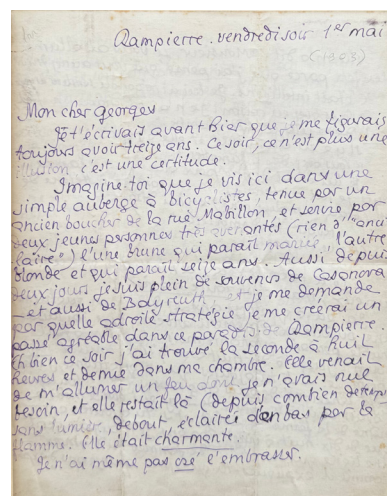 Dampierre. vendredi soir 1er mai
(1903)
Mon cher Georges
Je t'écrivais avant hier que je me figurais
toujours avoir treize ans. Ce soir, ce n'est plus une
illusion c'est une certitude.
Imagine-toi que je vis ici dans une
simple auberge à bicyclistes, tenue par un
ancien boucher de la rue Mabillon, et servie par
deux jeunes personnes très avenantes (rien d'"anci
laire") l'une brune qui paraît mariée, l'autre
blonde et qui paraît seize ans. Aussi, depuis
deux jours je suis plein de souvenirs de Casanova
— et aussi de Bayreuth — et je me demande
par quelle adroite stratégie je me créerai un
passé agréable dans ce paradis de Dampierre
Eh bien ce soir j'ai trouvé la seconde à huit
heures et demie dans ma chambre. Elle venait
de m'allumer un feu dont je n'avais nul
besoin, et elle restait là (depuis combien de temps
sans lumière, debout, éclairée d'en bas par la
flamme. Elle était charmante.
Je n'ai même pas osé l'embrasser.